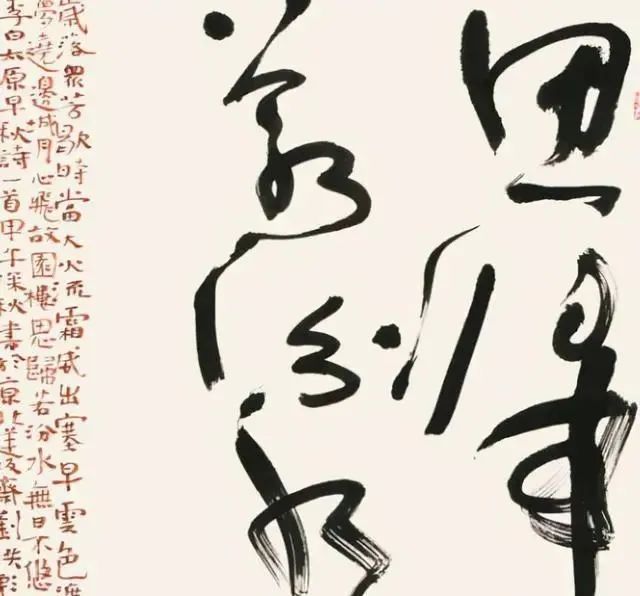 思歸
若汾水
歲落眾芳歇時當大火流霜威出塞早雲色渡
夢遶邊城月心飛故園樓思歸若汾水無日不悠
李白太原早秋詩一首甲午深秋書於京 齋劉